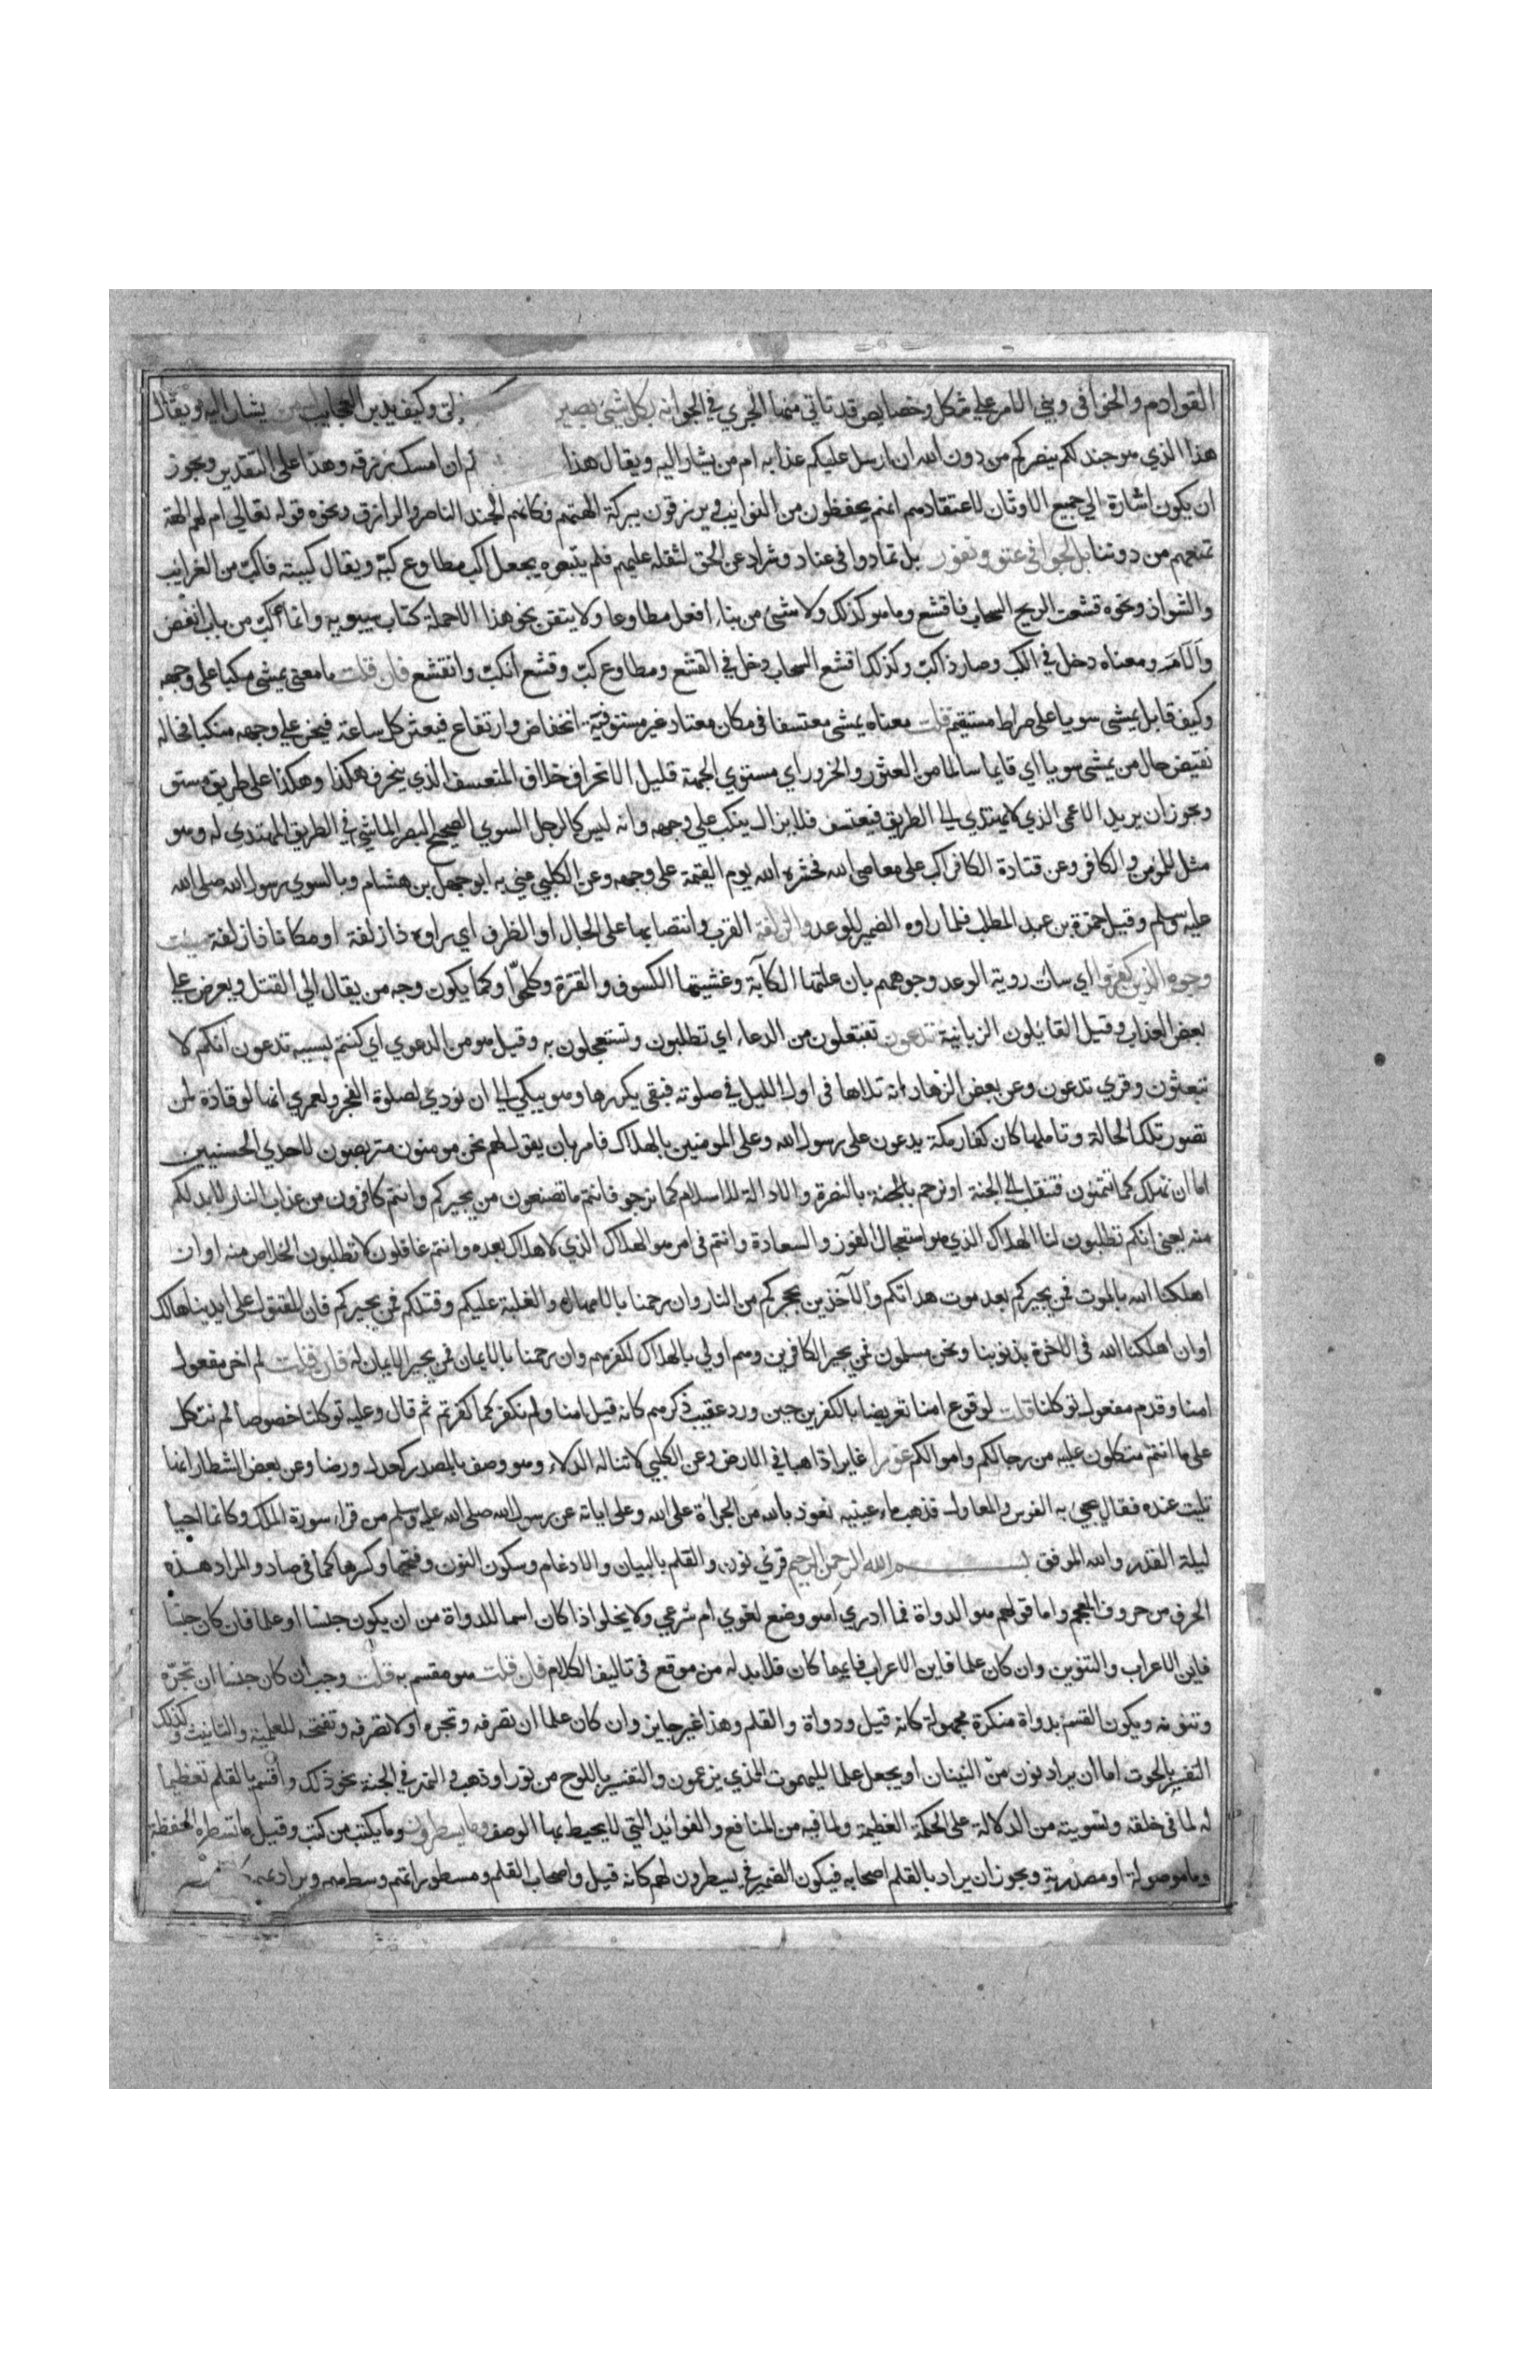 القوادم والخوافى وبني الامر على شكل وخصايص قد تاتي منها الجري في الجو انه بكل شئ بصير لق وكيف يدبر العجايب امن يشار اليه ويقال
هذا الذي هو جند لكم ينصركم من دون الله ان ارسل عليكم عذابه ام من يشار اليه ويقال هذا ان امسك رزقه وهذا على التقدير ويجوز
ان يكون اشارة الي جميع الاوثان لاعتقادهم انهم يحفظون من النوايب ويرزقون ببركة الهتهم فكانهم الجند الناصر والرازق ونحوه قوله تعالى ام لهم الهة
تمنعهم من دوننا بل لجوا في عتو ونفور بل تمادوا فى عناد وشراد عن الحق لثقله عليهم فلم يتبعوه يجعل اكب مطاوع كبه ويقال كببته فاكب من الغرايب
والشواذ ونحوه قشعت الريح السحاب فاقشع وما هو كذلك ولا شئ من بناء افعل مطاوعا ولا يتقن نحو هذا الا حملة كتاب سيبويه وانما اكب من باب انفض
والآم ومعناه دخل في الكب وصار ذا كب وكذلك اقشع السحاب دخل في القشع ومطاوع كب وقشع انكب وانقشع فان قلت ما معنى يمشى مكبا على وجهه
وكيف قابل يمشى سويا على صراط مستقيم قلت معناه يمشى معتسفا فى مكان معتاد غير مستو فيه انخفاض وارتفاع فيعثر كل ساعة فيخر علي وجهه منكبا فحاله
نقيض حال من يمشى سويا اي قايما سالما من العثور والخرور اي مستوي الجهة قليل الانحراف خلاف المتعسف الذي ينحرف هكذا وهكذا على طريق مستو
ويجوز ان يريد الاعمى الذي لا يهتدي الى الطريق فيعتسف فلا يزال ينكب علي وجهه وانه ليس كالرجل السوي الصحيح البصر الماشي في الطريق المهتدى له وهو
مثل للمؤمن والكافر وعن قتادة الكافر اكب على معاصى الله فحشره الله يوم القيمة على وجهه وعن الكلبي عني به ابو جهل بن هشام وبالسوي رسول الله صلى الله
عليه وسلم وقيل حمزة بن عبد المطلب فلما راوه الضمير للوعد والزلفة القرب وانتصابها على الحال او الظرف اي راوه ذا زلفة او مكانا ذا زلفة سيئت
وجوه الذين كفروا اي سات روية الوعد وجوههم بان علتها الكآبة وغشيتها الكسوف والقترة وكلحوا وكما يكون وجه من يقال الى القتل ويعرض علي
بعض العذاب وقيل القايلون الزبانية تدعون تفتعلون من الدعاء اي تطلبون وتستعجلون به وقيل هو من الدعوي اي كنتم بسببه تدعون انكم لا
تبعثون وقري تدعون وعن بعض الزهاد انه تلاها فى اول الليل في صلوته فبقى يكررها وهو يبكي الي ان نودي لصلوة الفجر ولعمري انها لوقاذة لمن
تصور تلك الحالة وتاملها كان كفار مكة يدعون على رسول الله وعلى المومنين بالهلاك فامر بان يقول لهم نحن مومنون متربصون لاحدي الحسنيين
اما ان نهلك كما تتمنون فننقلب الي الجنة او نرحم بالنصرة والادالة للاسلام كما نرجو فانتم ما تصنعون من يجيركم وانتم كافرون من عذاب النار لابد لكم
منه يعنى انكم تطلبون لنا الهلاك الذي هو استعجال الفوز والسعادة وانتم فى امر هو الهلاك الذي لا هلاك بعده وانتم غافلون لا تطلبون الخلاص منه او ان
اهلكنا الله بالموت فمن يجيركم بعد موت هداتكم والآخذين بحجزكم من النار وان رحمنا بالامهال والغلبة عليكم وقتلكم فمن يجيركم فان المقتول على ايدينا هالك
او ان اهلكنا الله فى الاخرة بذنوبنا ونحن مسلمون فمن يجير الكافرين وهم اولي بالهلاك لكفرهم وان رحمنا بالايمان فمن يجير لا ايمان له فان قلت لم اخر مفعول
امنا وقدم مفعول توكلنا قلت لوقوع امنا تعريضا بالكفرين حين ورد عقيب ذكرهم كانه قيل امنا ولم نكفر كما كفرتم ثم قال وعليه توكلنا خصوصا لم نتكل
على ما انتم متكلون عليه من رجالكم واموالكم غورا غايرا ذاهبا في الارض وعن الكلبي لا تناله الدلاء وهو وصف بالمصدر كعدل ورضا وعن بعض الشطار انها
تليت عنده فقال يجئ به الفوس والمعاول فذهب ماء عينيه نعوذ بالله من الجراة على الله وعلى اياته عن رسول الله صلى الله عليه وسلم من قرا سورة الملك وكانما احيا
ليلة القدر والله الموفق بسم الله الرحمن الرحيم قري نون والقلم بالبيان والادغام وسكون النون وفتحها وكسرها كما فى صاد والمراد هذه
الحرف من حروف المعجم واما قولهم هو الدواة فما ادري اهو وضع لغوي ام شرعي ولا يخلو اذا كان اسما للدواة من ان يكون جنسا او علما فان كان جنسا
فاين الاعراب والتنوين وان كان علما فاين الاعراب فايهما كان فلا بد له من موقع فى تاليف الكلام فان قلت هو مقسم به قلت وجب ان كان جنسا ان تجره
وتنونه ويكون القسم بدواة منكرة مجهولة كانه قيل ودواة والقلم وهذا غير جايز وان كان علما ان تصرفه وتجره او لا تصرفه وتفتحه للعلمية والتانيث وكذلك
التفسير بالحوت اما ان يراد نون من النينان او يجعل علما لليهموت الذي يزعمون والتفسير باللوح من نور او ذهب والنهر في الجنة نحو ذلك واقسم بالقلم تعظيما
له لما فى خلقه وتسويته من الدلالة على الحكمة العظيمة ولما فيه من المنافع والفوايد التي لا يحيط بها الوصف وما يسطرون وما يكتب من كتب وقيل ما تسطره الحفظة
وما موصولة او مصدرية ويجوز ان يراد بالقلم اصحابه فيكون الضمير في يسطرون لهم كانه قيل واصحاب القلم ومسطوراتهم وسطرهم ويراد بهم